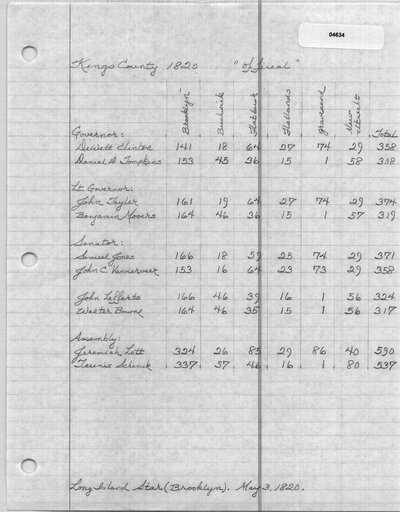 04634
Kings County 1820 "official"
Brooklyn Bushwick Flatbush Flatlands Gravesend New Utrecht Total
Governor:
DeWitt Clinton 141 18 64 27 74 29 358
Daniel D. Tompkins 153 45 36 15 1 58 308
Lt. Governor:
John Tayler 161 19 64 27 74 29 374
Benjamin Mooers 164 46 36 15 1 57 319
Senator:
Samuel Jones 166 18 59 25 74 29 371
John C. Vanderveer 153 16 64 23 73 29 358
John Lefferts 166 46 39 16 1 56 324
Walter Bowne 164 46 35 15 1 56 317
Assembly:
Jeremiah Lott 324 26 85 29 86 40 590
Teunis Schenck 337 57 46 16 1 80 537
Long Island Star (Brooklyn). May 3, 1820.